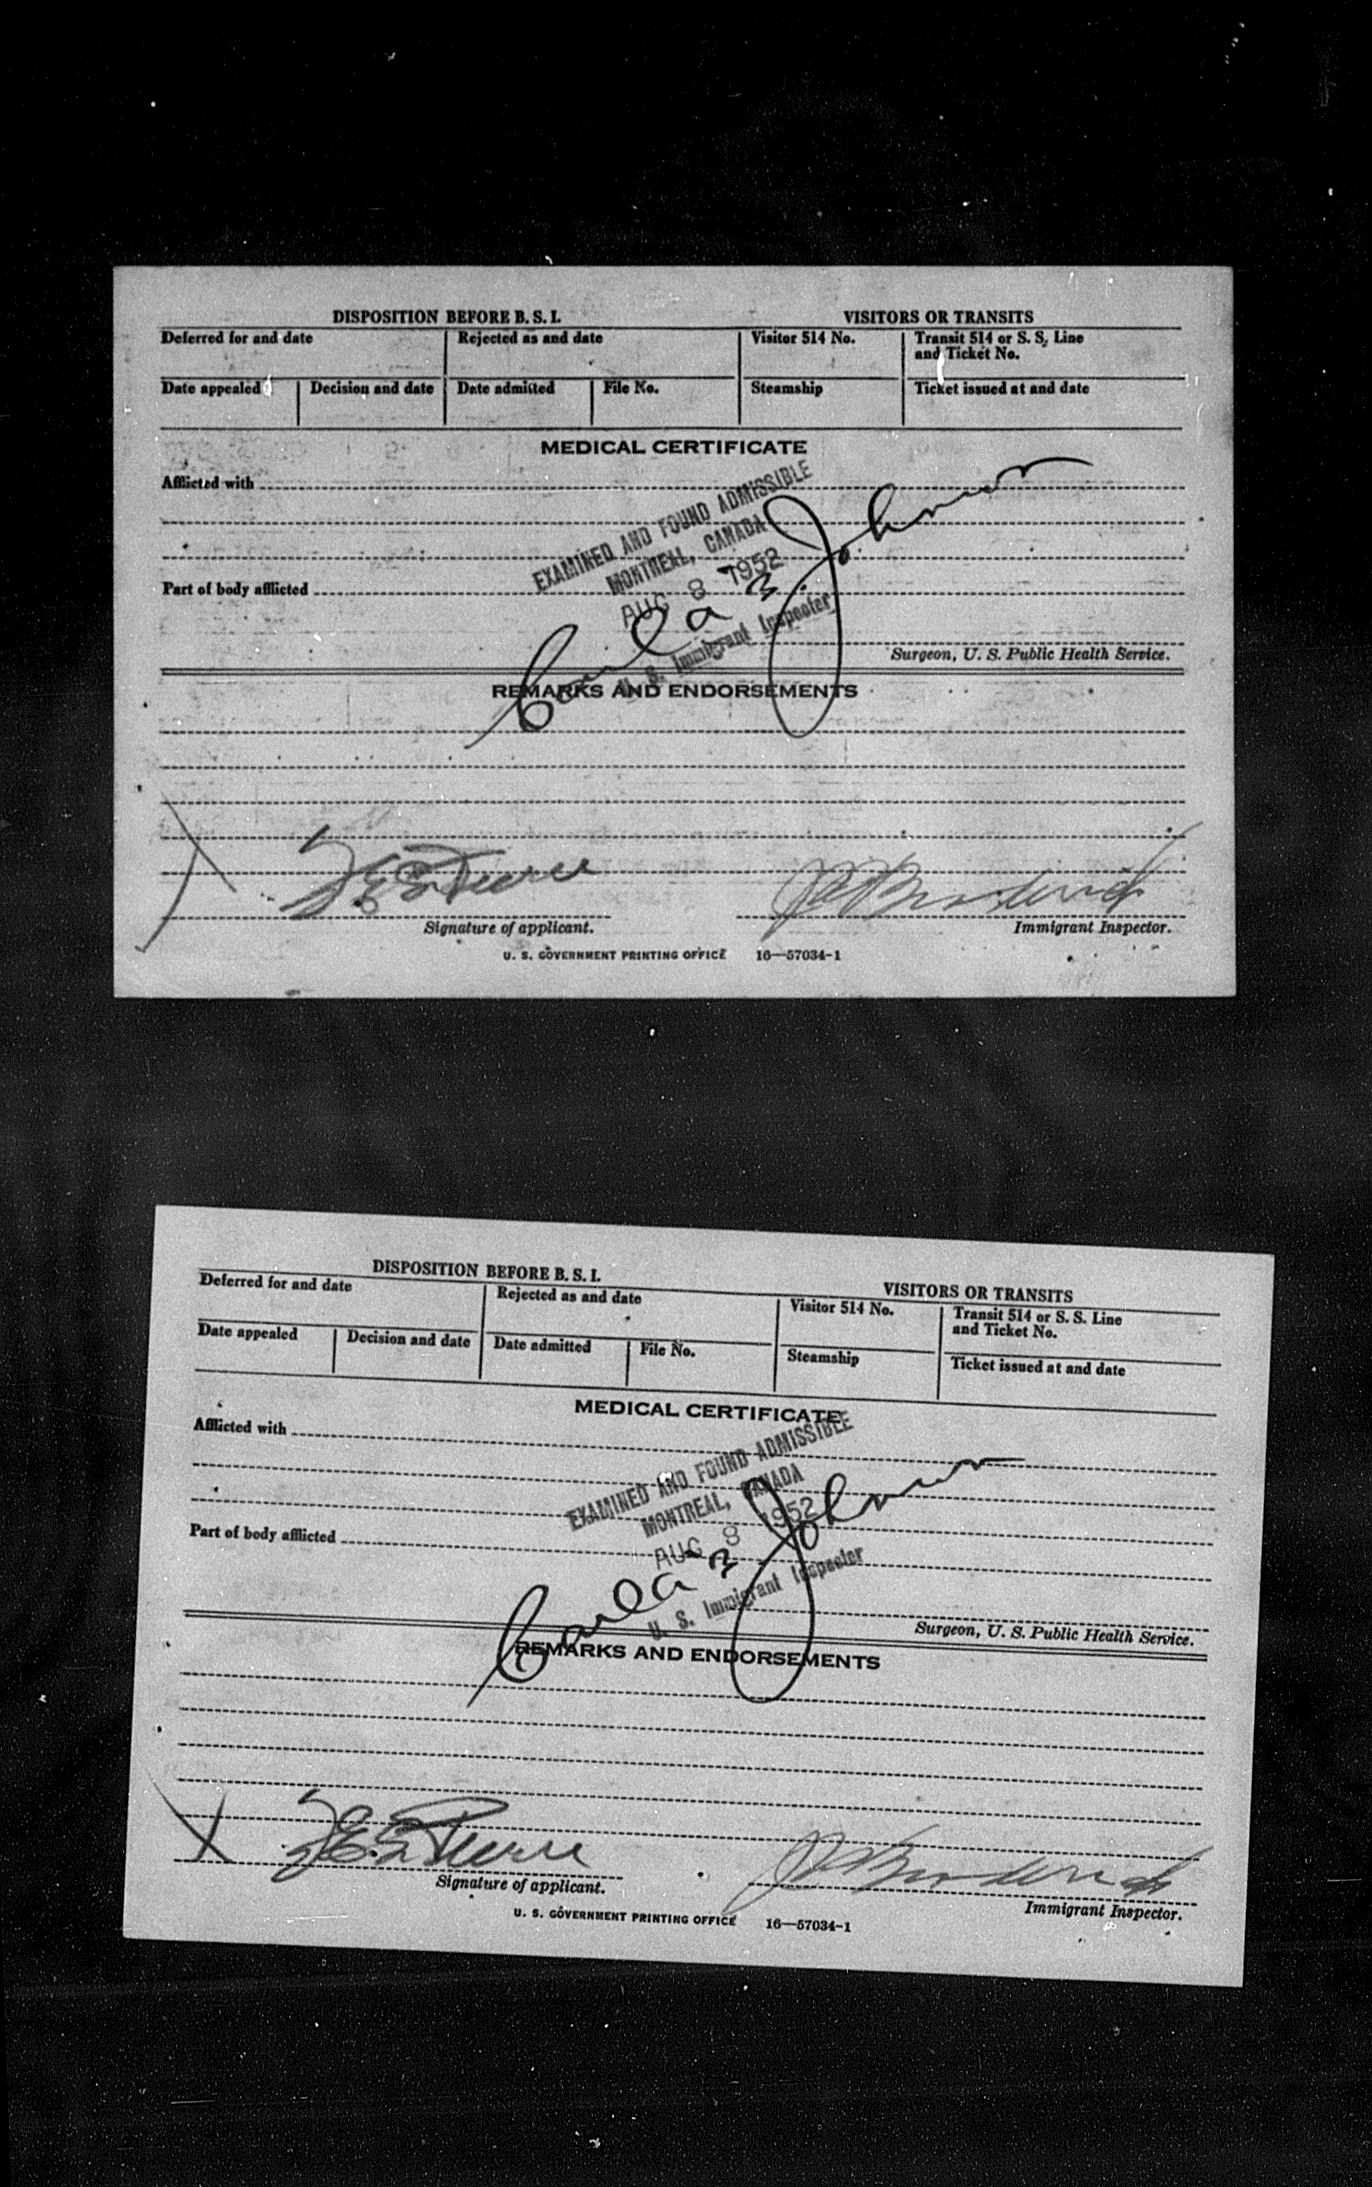 DISPOSITION BEFORE B. S. I. VISITORS OR TRANSITS
Deferred for and date Rejected as and date Visitor 514 No. Transit 514 or S. S. Line
and Ticket No.
Date appealed Decision and date Date admitted File No. Steamship Ticket issued at and date
MEDICAL CERTIFICATE
Afflicted with
EXAMINED AND FOUND ADMISSIBLE
MONTREAL, CANADA
AUG 8 1952
U. S. Immigrant Inspector
Carla Johnson
Part of body afflicted
Surgeon, U. S. Public Health Service.
REMARKS AND ENDORSEMENTS
Signature of applicant. Immigrant Inspector.
U. S. GOVERNMENT PRINTING OFFICE 16—57034-1
DISPOSITION BEFORE B. S. I. VISITORS OR TRANSITS
Deferred for and date Rejected as and date Visitor 514 No. Transit 514 or S. S. Line
and Ticket No.
Date appealed Decision and date Date admitted File No. Steamship Ticket issued at and date
MEDICAL CERTIFICATE
Afflicted with
EXAMINED AND FOUND ADMISSIBLE
MONTREAL, CANADA
AUG 8 1952
U. S. Immigrant Inspector
Carla Johnson
Part of body afflicted
Surgeon, U. S. Public Health Service.
REMARKS AND ENDORSEMENTS
Signature of applicant. Immigrant Inspector.
U. S. GOVERNMENT PRINTING OFFICE 16—57034-1